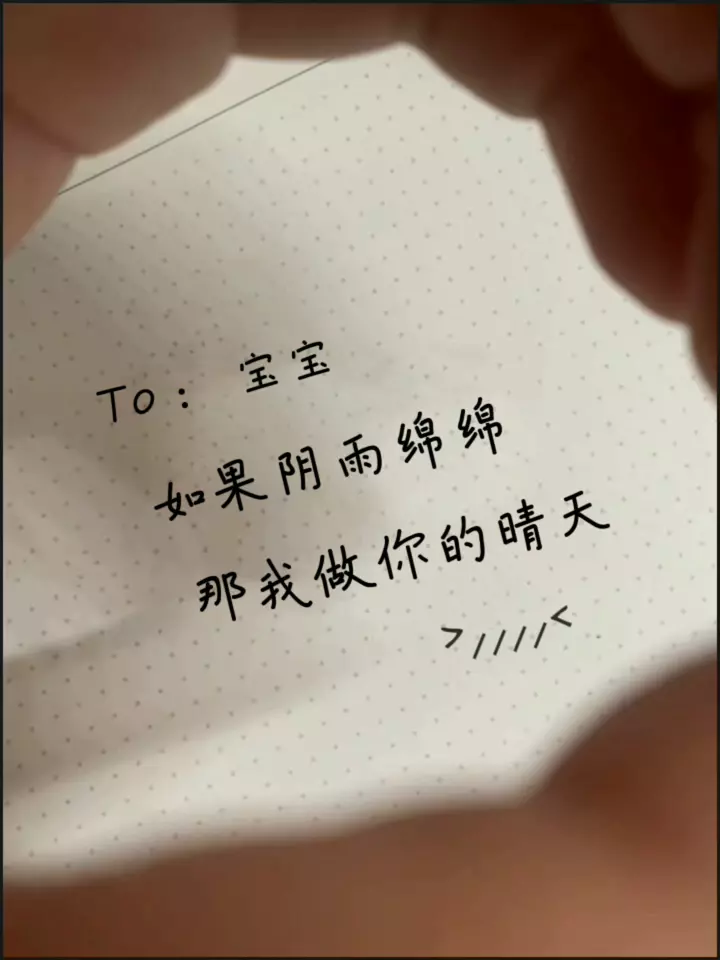 To： 宝宝
如果阴雨绵绵
那我做你的晴天
>////<